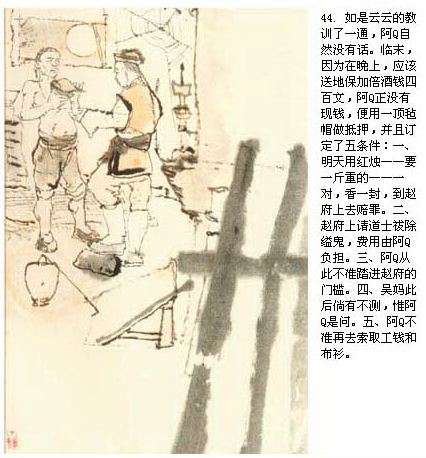 44. 如是云云的教
训了一通，阿Q自
然没有话。临末，
因为在晚上，应该
送地保加倍酒钱四
百文，阿Q正没有
现钱，便用一顶毡
帽做抵押，并且订
定了五条件：一、
明天用红烛——要
一斤重的———一
对，香一封，到赵
府上去赔罪。二、
赵府上请道士祓除
缢鬼，费用由阿Q
负担。三、阿Q从
此不准踏进赵府的
门槛。四、吴妈此
后倘有不测，惟阿
Q是问。五、阿Q不
准再去索取工钱和
布衫。